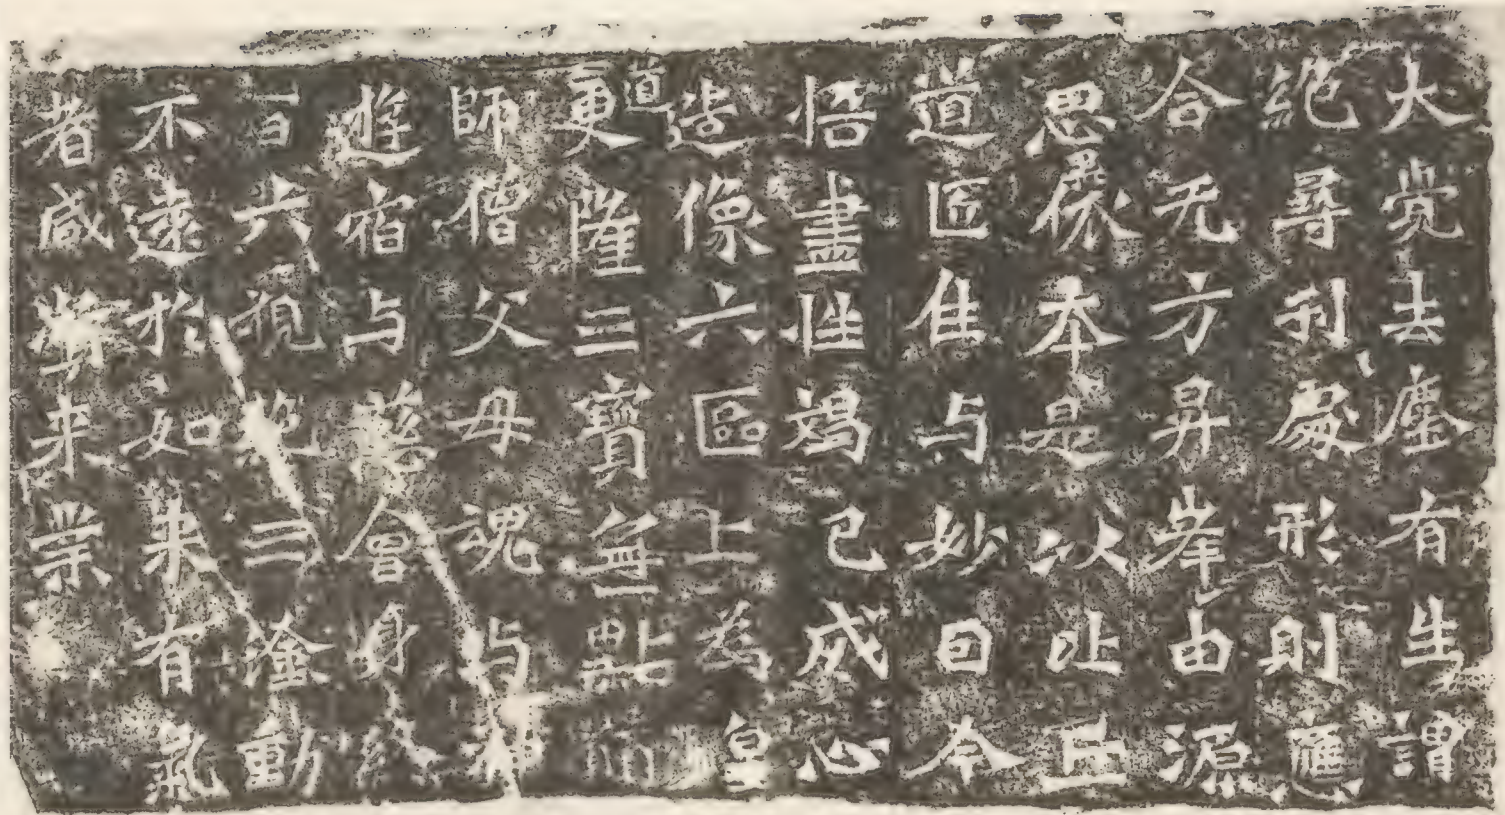 大覚去塵有生謂
絶尋刊處形則應
合无方昇峯由源
思本是以比丘
道匠隹与妙曰今
悟盡性竭己咸心
造像六區上為皇
道更隆三寶無點
師僧父母魂与神
遊宿与慈會身
百六視絶三塗動
不遠扵如来有氣
者咸来業